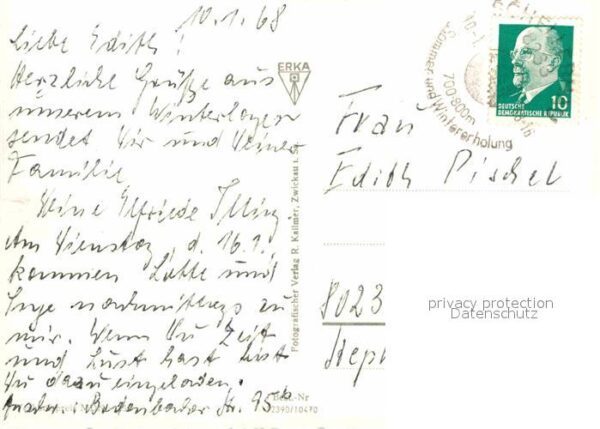 10.1.68
Liebe Edith!
Herzliche Grüße aus
unserem Winterlager
sendet Dir und Deiner
Familie
Deine Elfriede
Am Dienstag, d. 16.1.
kommen Lotte und
Inge nachmittags zu
mir. Wenn Du Zeit
und Lust hast bist
Du dazu eingeladen.
Bodenbacher Str. 95b
ERKA
Fotografischer Verlag R. Kallmer, Zwickau
Best.-Nr
2390/10470
Sommer und Wintererholung
700-800m
10
DEUTSCHE
DEMOKRATISCHE REPUBLIK
Frau
Edith Pischel
8023
privacy protection
Datenschutz